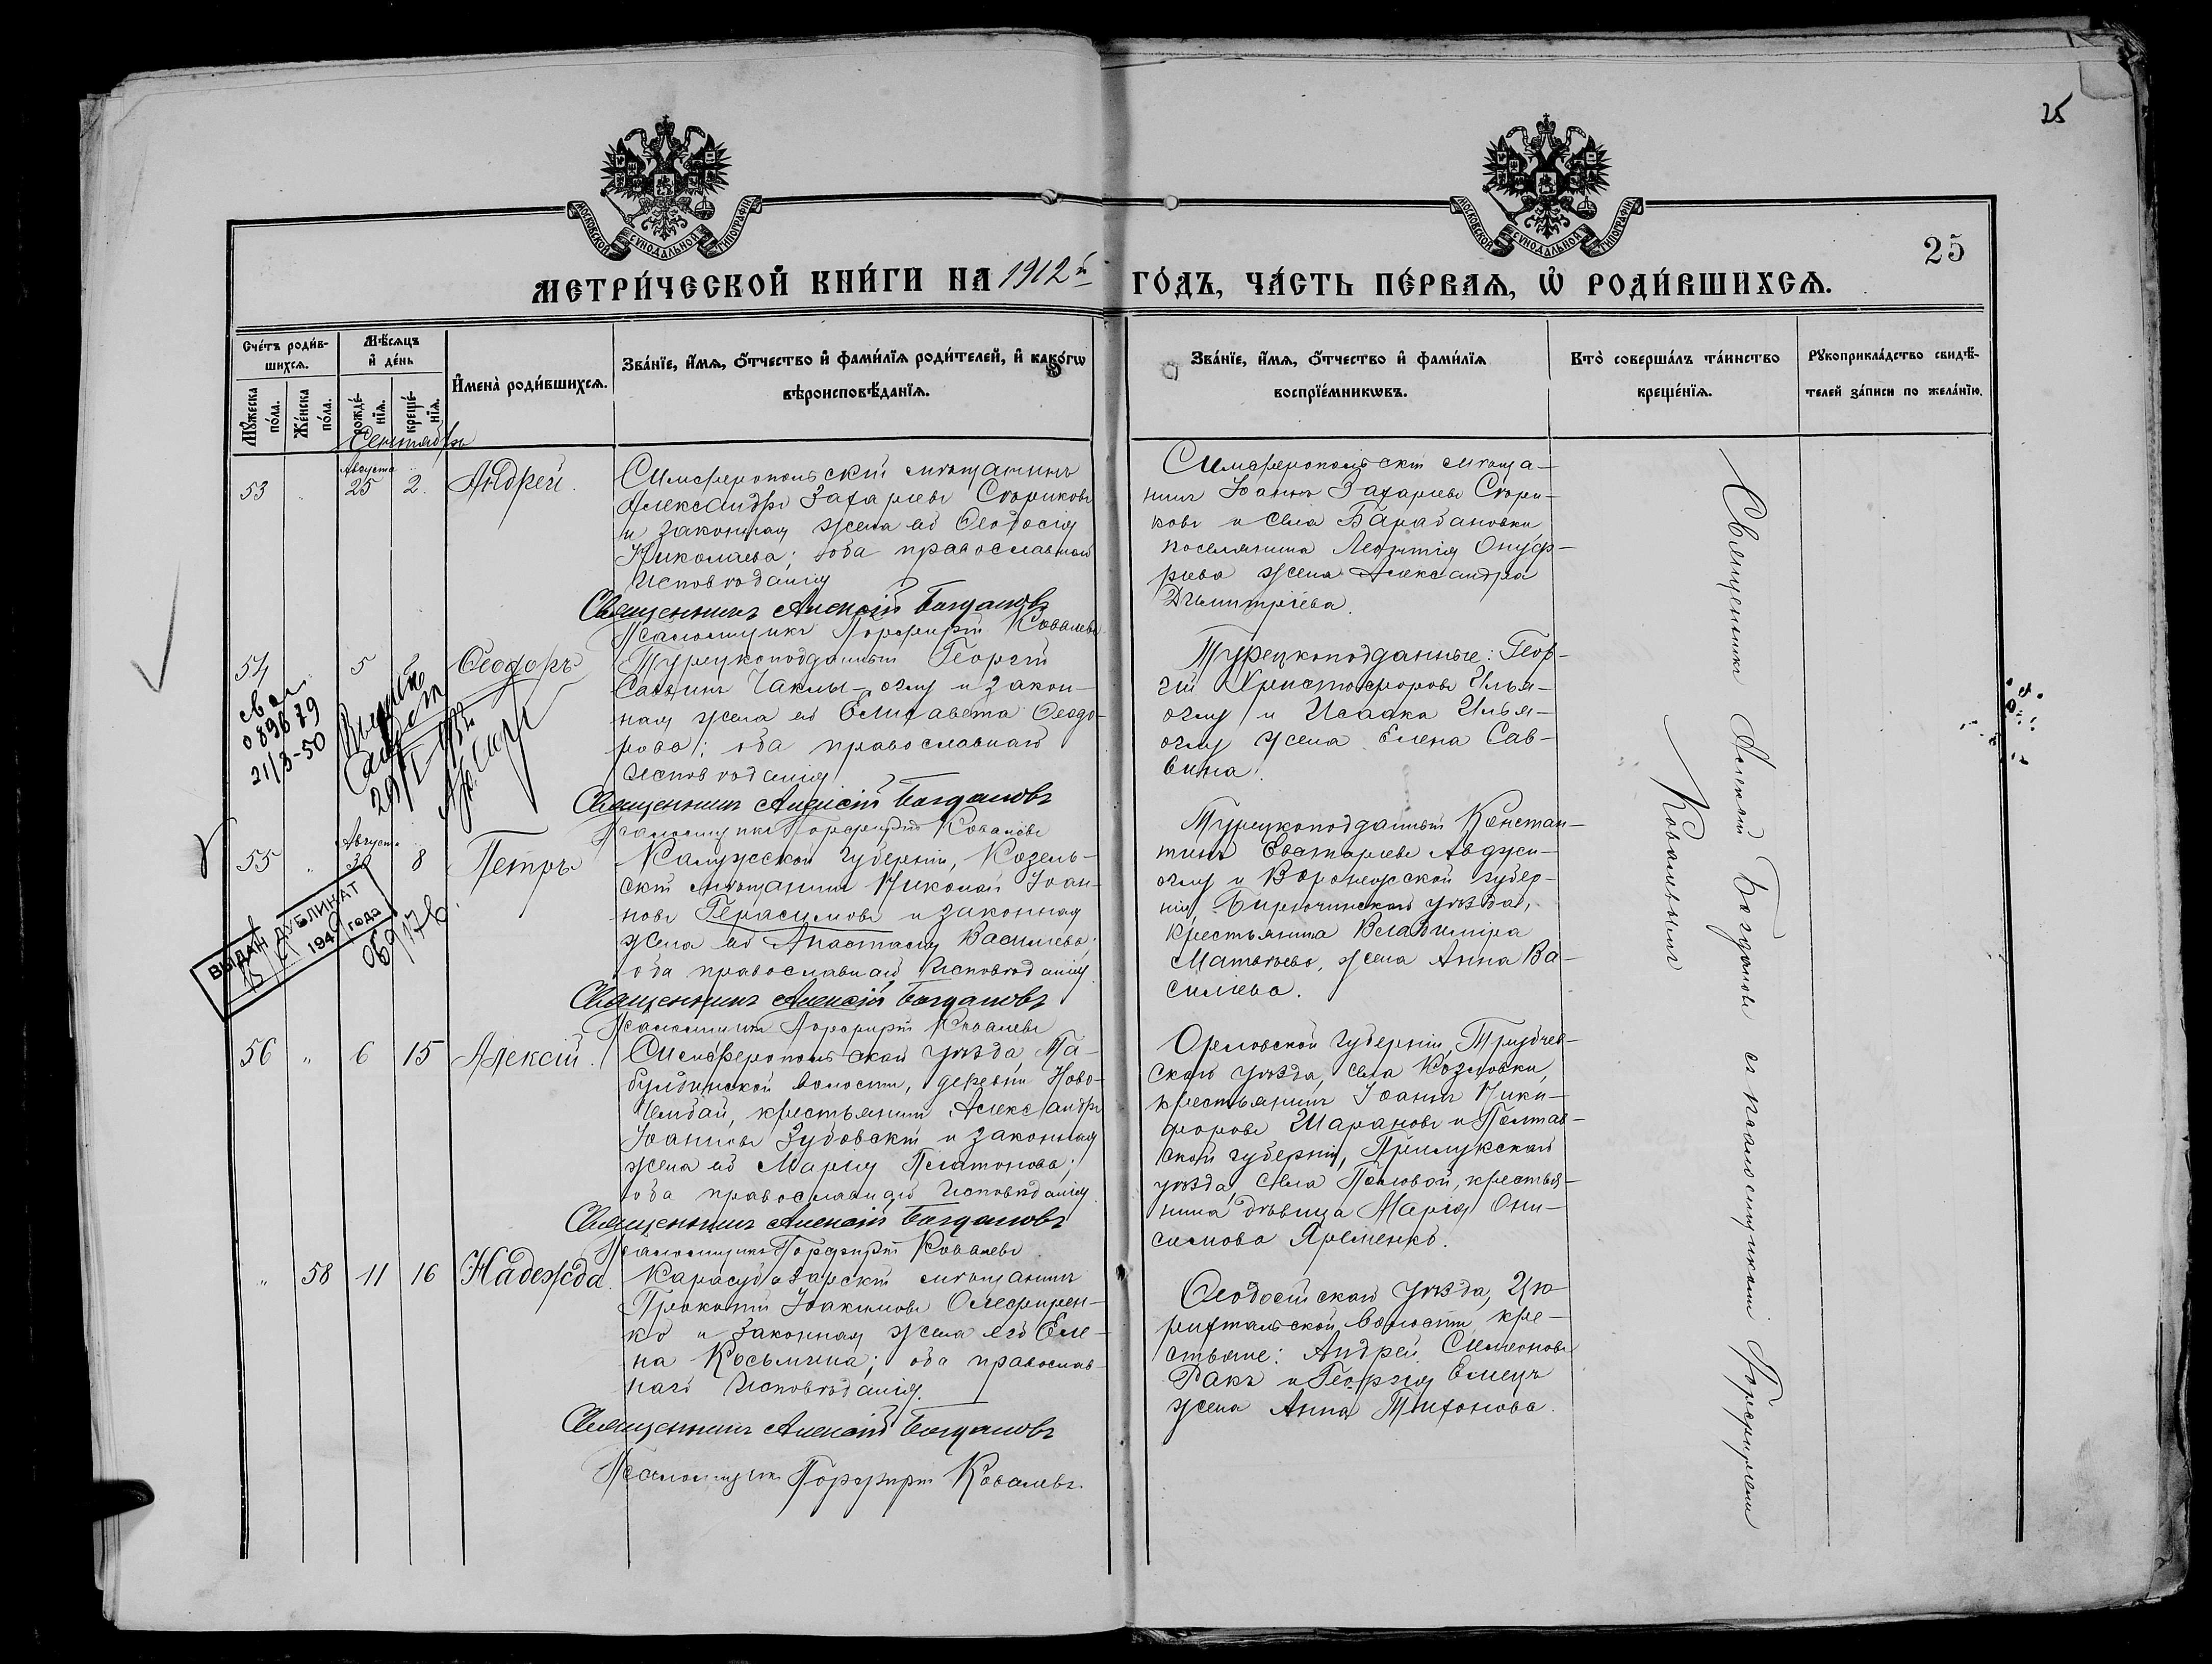 25
25
МОСКОВСКОЙ СѴНОДАЛЬНОЙ ТИПОГРАФІИ
МОСКОВСКОЙ СѴНОДАЛЬНОЙ ТИПОГРАФІИ
МЕТРИ́ЧЕСКОЙ КНИ́ГИ НА 1912й ГО́ДЪ, ЧА́СТЬ ПЕ́РВАѦ, Ѡ РОДИ́ВШИХСѦ.
Сче́тъ роди́в-
шихсѧ.
Мꙋ́жеска по́ла.
Же́нска по́ла.
Мѣ́сѧцъ
и҆ де́нь
рожде́-
нїѧ.
креще́-
нїѧ.
И҆мена̀ роди́вшихсѧ.
Зва́нїе, и҆́мѧ, ѻ҆́тчество и҆ фами́лїѧ роди́телей, и҆ како́гѡ
вѣроисповѣ́данїѧ.
Зва́нїе, и҆́мѧ, ѻ҆́тчество и҆ фами́лїѧ
воспрїе́мникѡвъ.
Кто̀ соверша́лъ та́инство
креще́нїѧ.
Рꙋкоприкла́дство свидѣ́-
телей за́писи по жела́нїю.
Сентябрь
53 " Августа 25 2. Андрей.
Симферопольскій мѣщанинъ
Александръ Захаріевъ Скориковъ
и законная жена его Ѳеодосія
Николаева; оба православнаго
исповѣданія
Священникъ Алексій Богдановъ
Псаломщикъ Порфирій Ковалевъ
Симферопольскій мѣща-
нинъ Іоаннъ Захаріевъ Скори-
ковъ и села Барабановки
поселянина Леонтія Онуф-
ріева жена Александра
Димитріева.
54 5 Ѳеодоръ
089679
21/3-50
Турецкоподданный Георгій
Саввинъ Чаклы-оглу и закон-
ная жена его Елисавета Ѳеодо-
рова; оба православнаго
исповѣданія
Священникъ Алексій Богдановъ
Псаломщикъ Порфирій Ковалевъ
Турецкоподданные: Геор-
гій Христофоровъ Илья-
оглу и Исаака Илья-
оглу жена Елена Сав-
вина.
55 " Августа 30 8 Петръ
ВЫДАН ДУБЛИКАТ
194 года
Калужской губерніи, Козель-
скій мѣщанинъ Николай Іоан-
новъ Герасимовъ и законная
жена его Анастасія Василіева;
оба православнаго исповѣданія.
Священникъ Алексій Богдановъ
Псаломщикъ Порфирій Ковалевъ
Турецкоподданный Констан-
тинъ Евстаріевъ Авджи-
оглу и Воронежской губер-
ніи, Бирючинскаго уѣзда,
крестьянина Владиміра
Матвѣева, жена Анна Ва-
силіева.
56 " 6 15 Алексій.
Симферопольскаго уѣзда, Та-
булдинской волости, деревни Ново-
крестьянинъ Александръ
Іоанновъ Зубовскій и законная
жена его Марія Платонова;
оба православнаго исповѣданія.
Священникъ Алексій Богдановъ
Псаломщикъ Порфирій Ковалевъ
Орловской губерніи, Трубчев-
скаго уѣзда, села Козловки,
крестьянинъ Іоаннъ Ники-
форовъ Шарановъ и Полтав-
ской губерніи, Прилукскаго
уѣзда села Полковой, крестья-
нина дѣвица Марія Они-
симова Яременко.
" 58 11 16 Надежда.
Карасубазарскій мѣщанинъ
Прокопій Іоакимовъ Олефирен-
ко и законная жена его Еле-
на Косьмина; оба православ-
наго исповѣданія.
Священникъ Алексій Богдановъ
Псаломщикъ Порфирій Ковалевъ.
Ѳеодосійскаго уѣзда, Цю-
рихтальской волости кре-
стьяне: Андрей Симеоновъ
Ракъ и Георгія Емецъ
жена Анна Тихонова.
Священникъ Алексій Богдановъ съ псаломщикомъ Порфиріемъ
Ковалевымъ